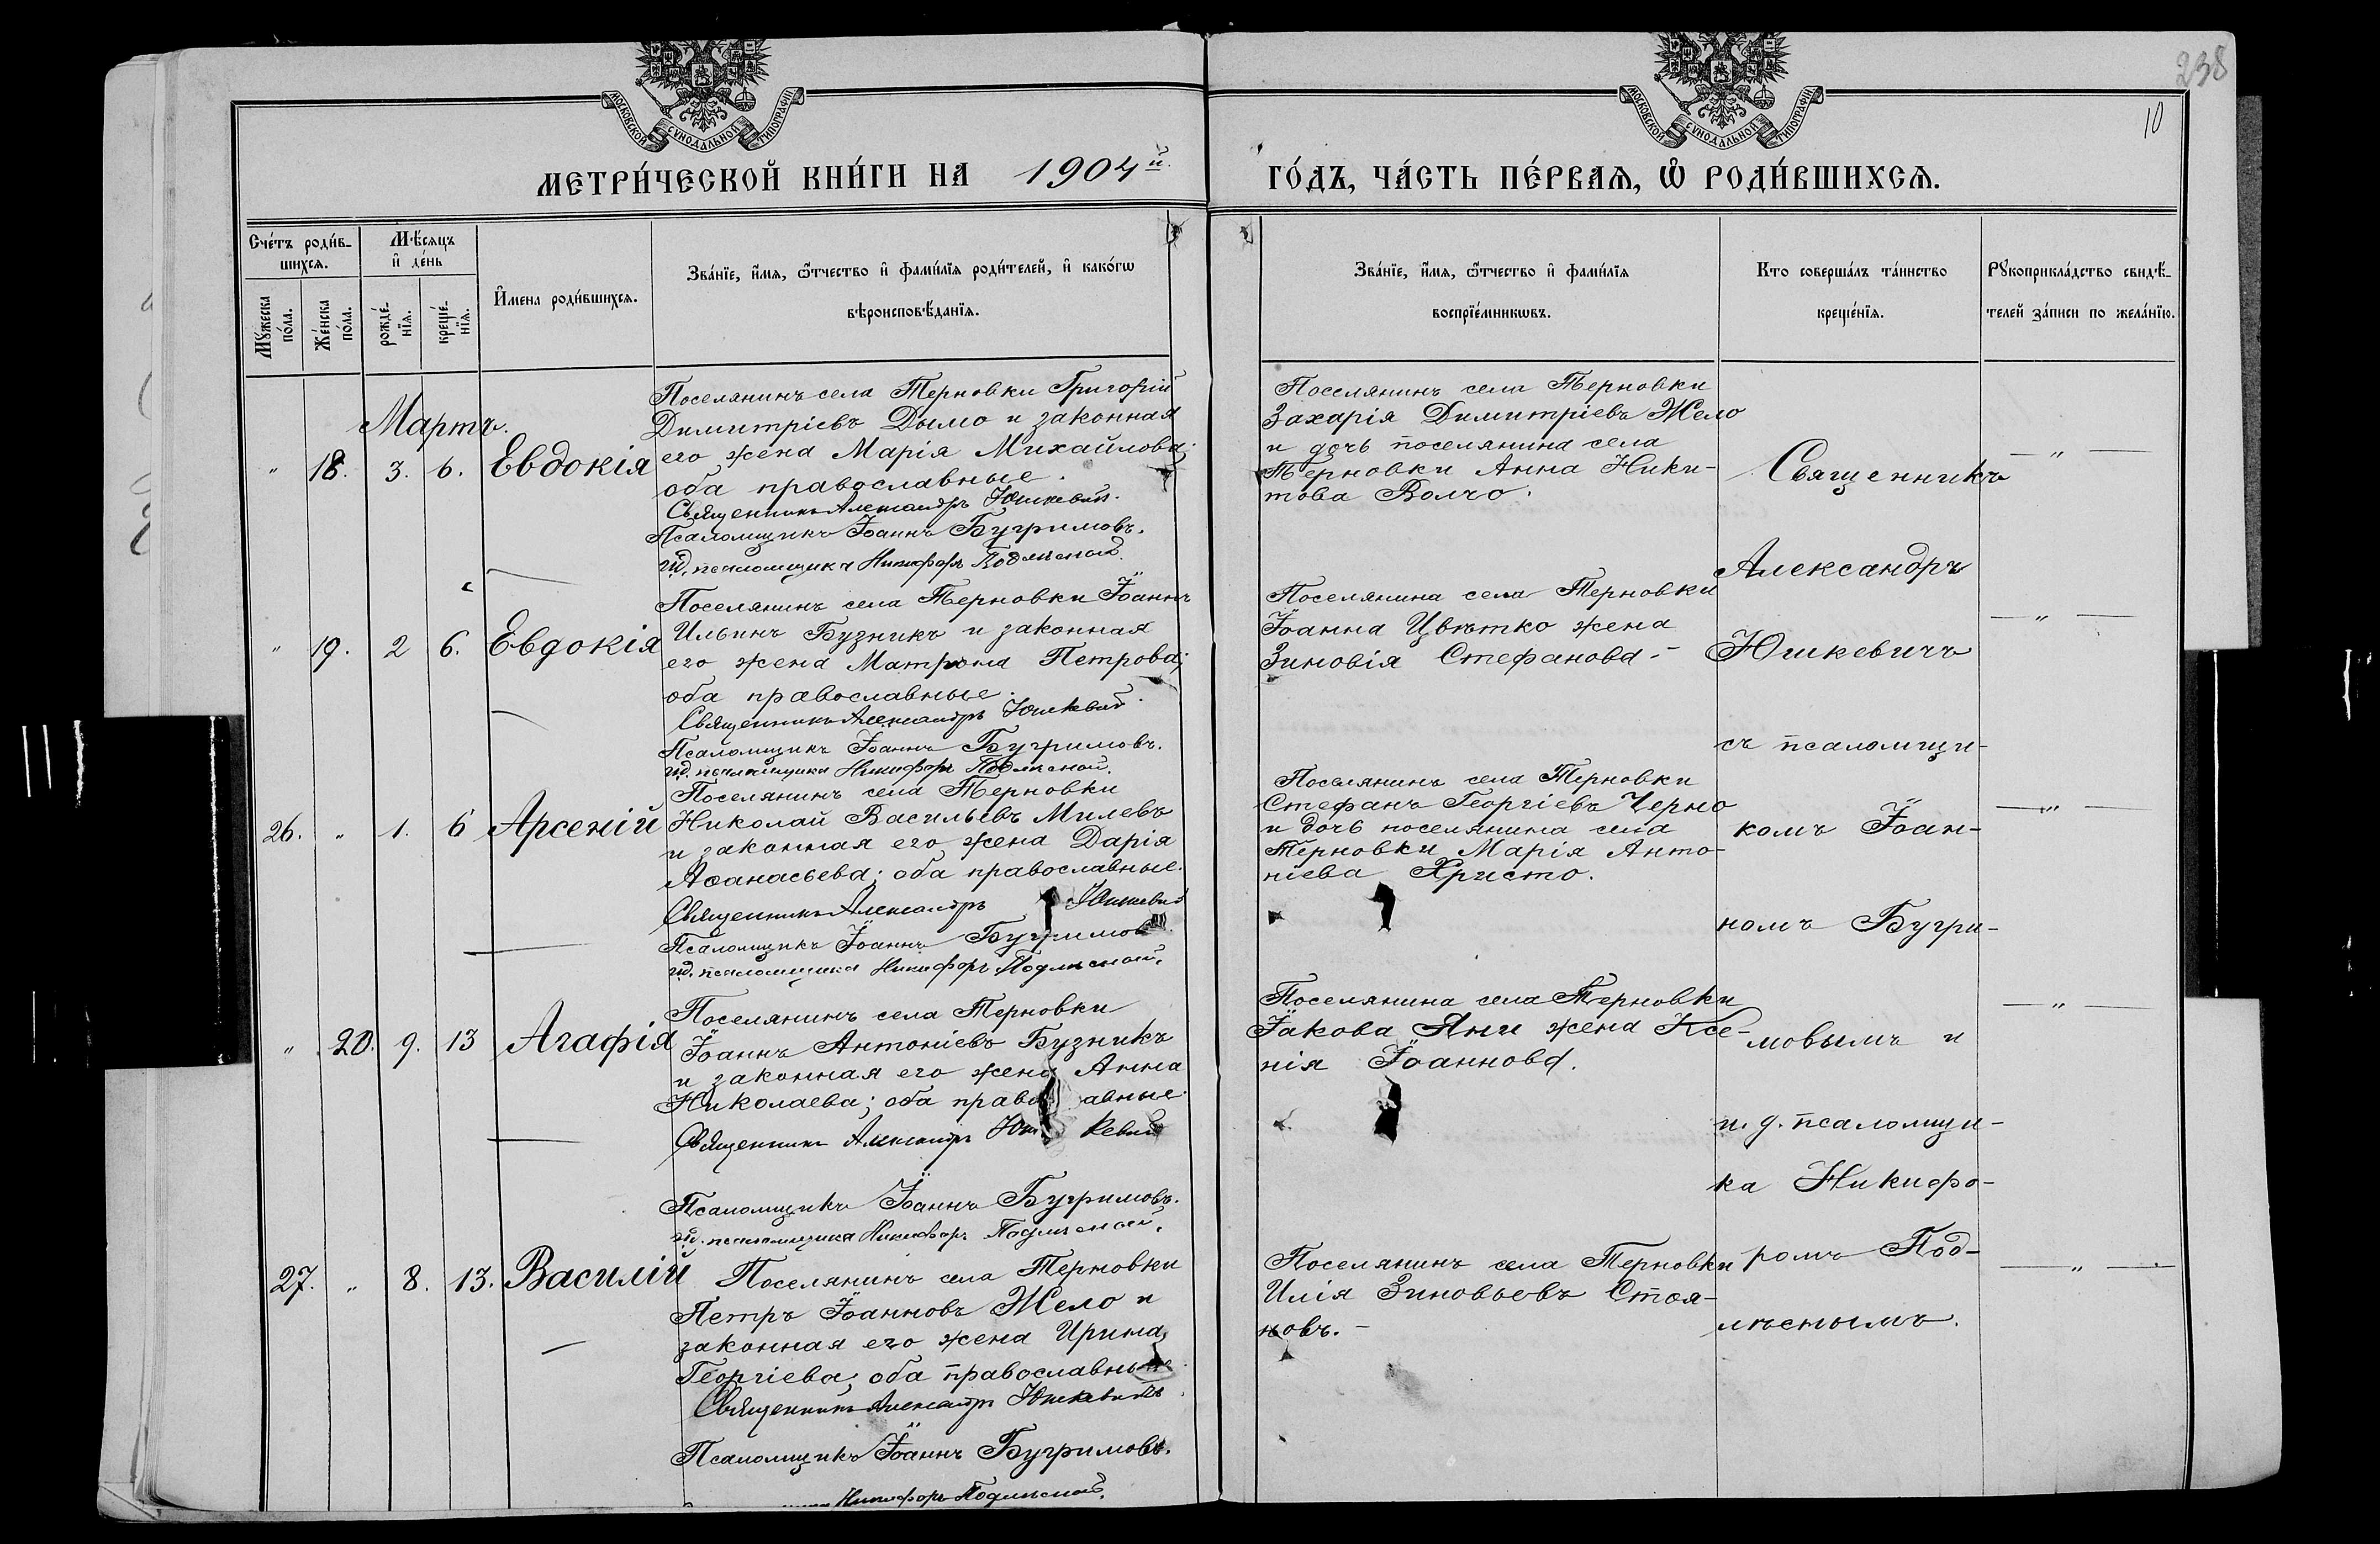 238
10
МОСКОВСКОЙ СѴНОДАЛЬНОЙ ТИПОГРАФІИ
МОСКОВСКОЙ СѴНОДАЛЬНОЙ ТИПОГРАФІИ
МЕТРИ́ЧЕСКОЙ КНИ́ГИ НА 1904й
ГО́ДЪ, ЧА́СТЬ ПЕ́РВАѦ, Ѡ҆ РОДИ́ВШИХСѦ.
Сче́тъ роди́в-
шихсѧ.
Мꙋ́жеска по́ла.
Же́нска по́ла.
Мѣ́сѧцъ
и҆ де́нь
рожде́-
нїѧ.
креще́-
нїѧ.
И҆мена роди́вшихсѧ.
Зва́нїе, и҆́мѧ, ѻ҆́тчество и҆ фами́лїѧ роди́телей, и҆ како́гѡ
вѣроисповѣ́данїѧ.
Зва́нїе, и҆́мѧ, ѻ҆́тчество и҆ фами́лїѧ
воспрїе́мникѡвъ.
Кто соверша́лъ та́инство
креще́нїѧ.
Рꙋкоприкла́дство свидѣ́-
телей за́писи по жела́нїю.
Мартъ.
" 18. 3. 6. Евдокія
Поселянинъ села Терновки Григорій
Димитріевъ Дымо и законная
его жена Марія Михайлова;
оба православные.
Священникъ Александръ Юшкевич.
Псаломщикъ Іоаннъ Бугримовъ.
и.д. псаломщика Никифоръ Подлѣсной.
Поселянинъ села Терновки
Захарія Димитріевъ Жело
и дочь поселянина села
Терновки Анна Ники-
това Волчо.
— " —
" 19. 2 6. Евдокія
Поселянинъ села Терновки Іоаннъ
Ильинъ Бузникъ и законная
его жена Матрона Петрова;
оба православные.
Священникъ Александръ Юшкевич.
Псаломщикъ Іоаннъ Бугримовъ.
и.д. псаломщика Никифоръ Подлѣсной.
Поселянина села Терновки
Іоанна Цвѣтко жена
Зиновія Стефанова. –
— " —
26. " 1. 6 Арсеній
Поселянинъ села Терновки
Николай Васильевъ Милевъ
и законная его жена Дарія
Аѳанасьева; оба православные.
Священникъ Александръ Юшкевич
Псаломщикъ Іоаннъ Бугримовъ.
и.д. псаломщика Никифоръ Подлѣсной.
Поселянинъ села Терновки
Стефанъ Георгіевъ Черно
и дочь поселянина села
Терновки Марія Анто-
ніева Христо.
— " —
" 20. 9. 13 Агафія
Поселянинъ села Терновки
Іоаннъ Антоніевъ Бузникъ
и законная его жена Анна
Николаева; оба право авные
Священникъ Александръ Юш кевич
Псаломщикъ Іоаннъ Бугримовъ.
и.д. псаломщика Никифоръ Подлѣсной.
Поселянина села Терновки
Іакова Яни жена Ксе-
нія Іоаннова.
— " —
27. " 8. 13. Василій
Поселянинъ села Терновки
Петръ Іоанновъ Жело и
законная его жена Ирина
Георгіева; оба православные
Священникъ Александръ Юшкевичъ.
Псаломщикъ Іоаннъ Бугримовъ.
Никифоръ Подлѣсной.
Поселянинъ села Терновки
Илія Зиновьевъ Стоя-
новъ. –
— " —
Священникъ
Александръ
Юшкевичъ
съ псаломщи-
комъ Іоан-
номъ Бугри-
мовымъ и
и. д. псаломщи-
ка Никифо-
ромъ Под-
лѣснымъ.